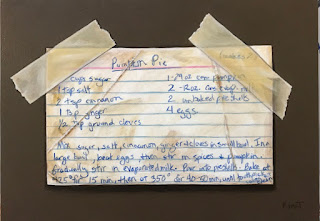 Pumpkin Pie
cups sugar
1 tsp salt
2 tsp cinnamon
1 tsp ginger
1/2 tsp ground cloves
can pumpkin
2 - oz can evap. milk
2 unbaked pie shells
4 eggs
Mix sugar, salt, cinnamon, ginger & cloves in small bowl. In a
large bowl, beat eggs then stir in spices & pumpkin.
Gradually stir in evaporated milk. Pour into pie shells. Bake at
425° for 15 min, then at 350° for 40-50 min, until